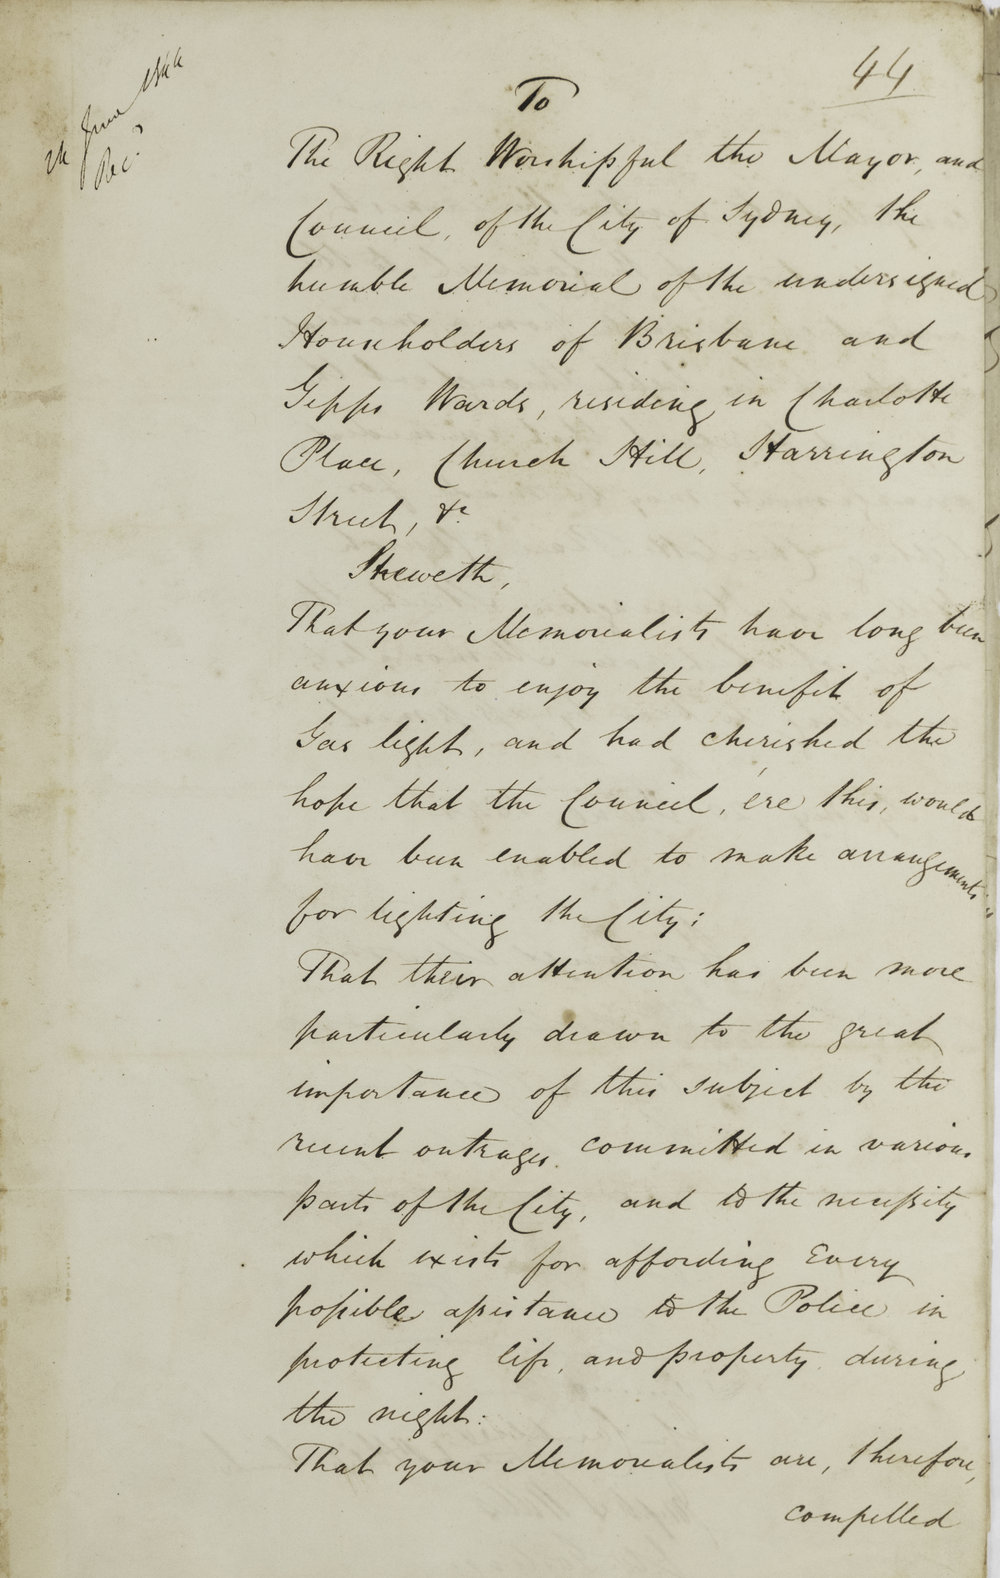 44
June 1844
Rec.d
To
The Right Worshipful the Mayor, and
Council, of the City of Sydney, the
humble Memorial of the undersigned
Householders of Brisbane and
Gipps Wards, residing in Charlotte
Place, Church Hill, Harrington
Street, &c
Sheweth,
That your Memorialists have long been
anxious to enjoy the benefit of
Gas light, and had cherished the
hope that the Council, ere this, would
have been enabled to make arrangements
for lighting the City;
That their attention has been more
particularly drawn to the great
importance of this subject by the
recent outrages committed in various
parts of the City, and to the necessity
which exists for affording Every
possible assistance to the Police in
protecting life, and property during
the night:
That your Memorialists are, therefore,
compelled